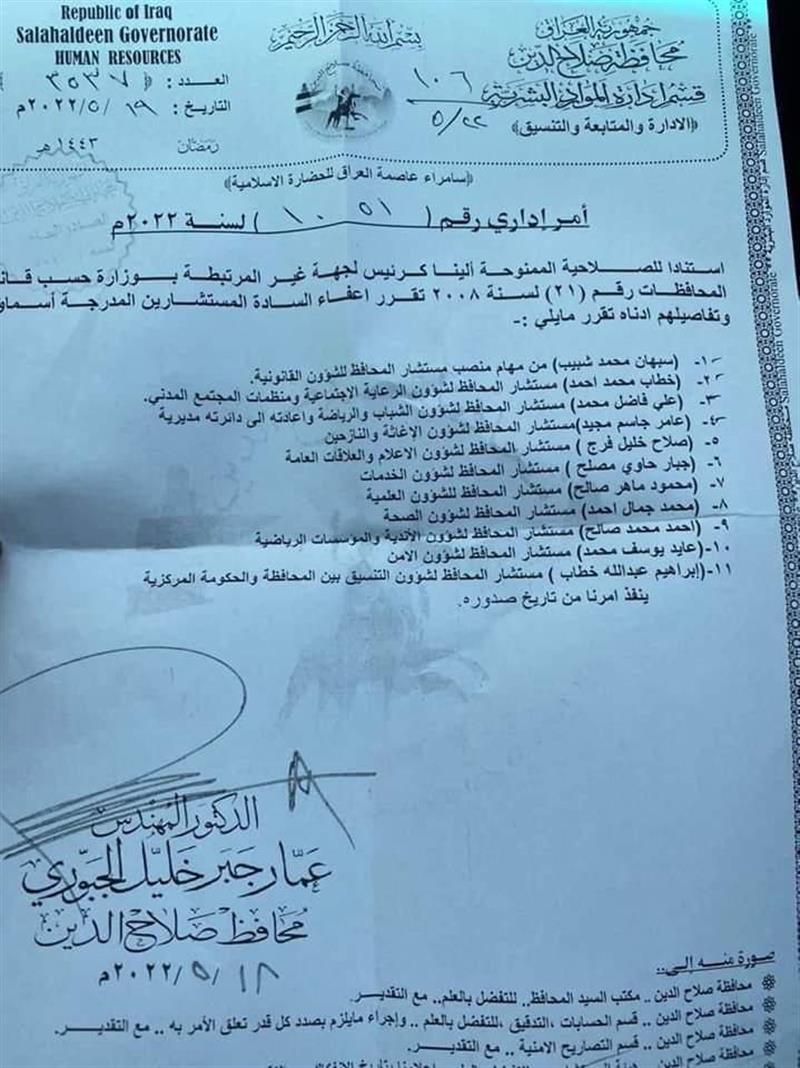 Republic of Iraq
Salahaldeen Governorate
HUMAN RESOURCES
العدد : ﴿ ٣٥٣٧ ﴾
التاريخ : ١٩ / ٥ / ٢٠٢٢م
رمضان ١٤٤٣هـ
بسم الله الرحمن الرحيم
جمهورية العراق
محافظة صلاح الدين
قسم إدارة الموارد البشرية
﴿الادارة والمتابعة والتنسيق﴾
١٠٦
٥/٢٢
﴿سامراء عاصمة العراق للحضارة الاسلامية﴾
أمر إداري رقم ( ١٠٥١ ) لسنة ٢٠٢٢م
استنادا للصلاحية الممنوحة ألينا كرئيس لجهة غير المرتبطة بوزارة حسب
المحافظات رقم (٢١) لسنة ٢٠٠٨ تقرر اعفاء السادة المستشارين المدرجة
وتفاصيلهم ادناه تقرر مايلي :-
١- (سبهان محمد شبيب) من مهام منصب مستشار المحافظ للشؤون القانونية.
٢- (خطاب محمد احمد) مستشار المحافظ لشؤون الرعاية الاجتماعية ومنظمات المجتمع المدني.
٣- (علي فاضل محمد) مستشار المحافظ لشؤون الشباب والرياضة واعادته الى دائرته مديرية
٤- (عامر جاسم مجيد)مستشار المحافظ لشؤون الإغاثة والنازحين
٥- (صلاح خليل فرج ) مستشار المحافظ لشؤون الاعلام والعلاقات العامة
٦- (جبار حاوي مصلح ) مستشار المحافظ لشؤون الخدمات
٧- (محمود ماهر صالح) مستشار المحافظ للشؤون العلمية
٨- (محمد جمال احمد) مستشار المحافظ لشؤون الصحة
٩- (احمد محمد صالح) مستشار المحافظ لشؤون الأندية والمؤسسات الرياضية
١٠- (عايد يوسف محمد) مستشار المحافظ لشؤون الامن
١١-(إبراهيم عبدالله خطاب ) مستشار المحافظ لشؤون التنسيق بين المحافظة والحكومة المركزية
ينفذ امرنا من تاريخ صدوره.
الدكتور المهندس
عمّار جبر خليل الجبّوري
محافظ صلاح الدين
١٨ / ٥ / ٢٠٢٢م
صورة منه إلى..
محافظة صلاح الدين .. مكتب السيد المحافظ.. للتفضل بالعلم.. مع التقدير.
محافظة صلاح الدين .. قسم الحسابات ،التدقيق ،للتفضل بالعلم .. وإجراء مايلزم بصدد كل قدر تعلق الأمر به .. مع التقدير.
محافظة صلاح الدين .. قسم التصاريح الامنية .. مع التقدير.
محافظة صلاح الدين ..